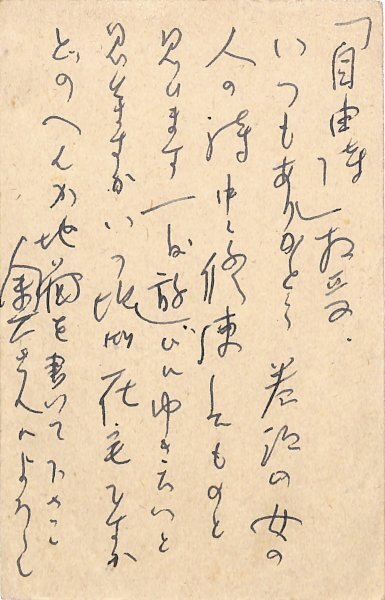 「自由詩」お受、
いつもありがとう 巻頭の女の
人の詩 中々優凍なものと
思ひます 一度遊びにゆきたいと
思ひますが いつ頃御在宅ですか
どのへんか地図を書いて下さい
金子さんによろしく